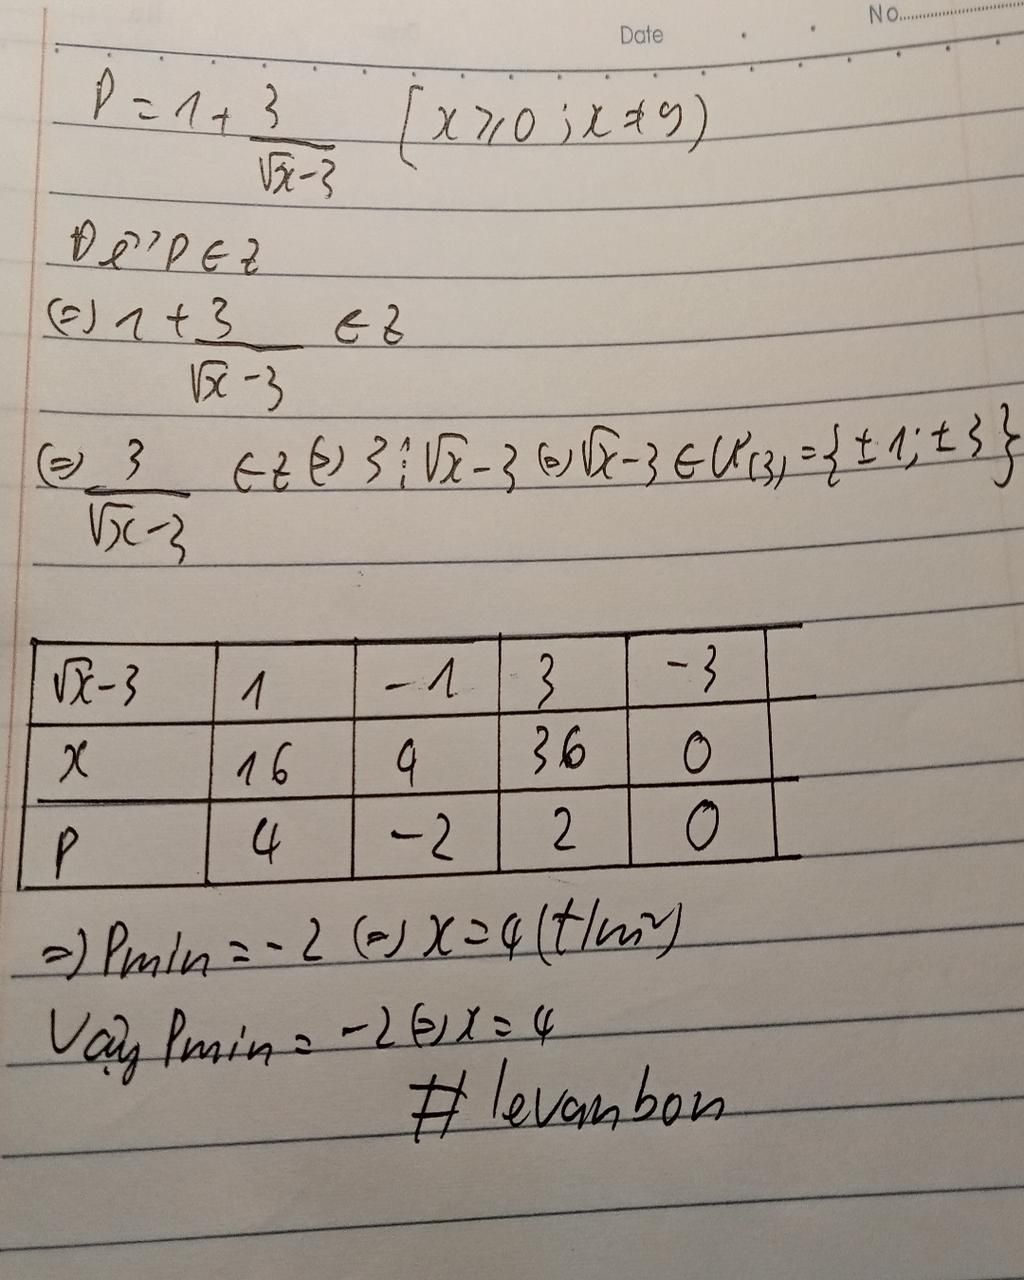 No
Date
P = 1 + 3/(√x-3) (x ⩾ 0 ; x ≠ 9)
Để P ∈ Z
(=) 1 + 3/(√x-3) ∈ Z
(=) 3/(√x-3) ∈ Z (=) 3 ⋮ √x-3 (=) √x-3 ∈ Ư(3) = {±1; ±3}
√x-3 1 -1 3 -3
x 16 4 36 0
P 4 -2 2 0
=) Pmin = -2 (=) x = 4 (t/m²)
Vậy Pmin = -2 (=) x = 4
# levanbon